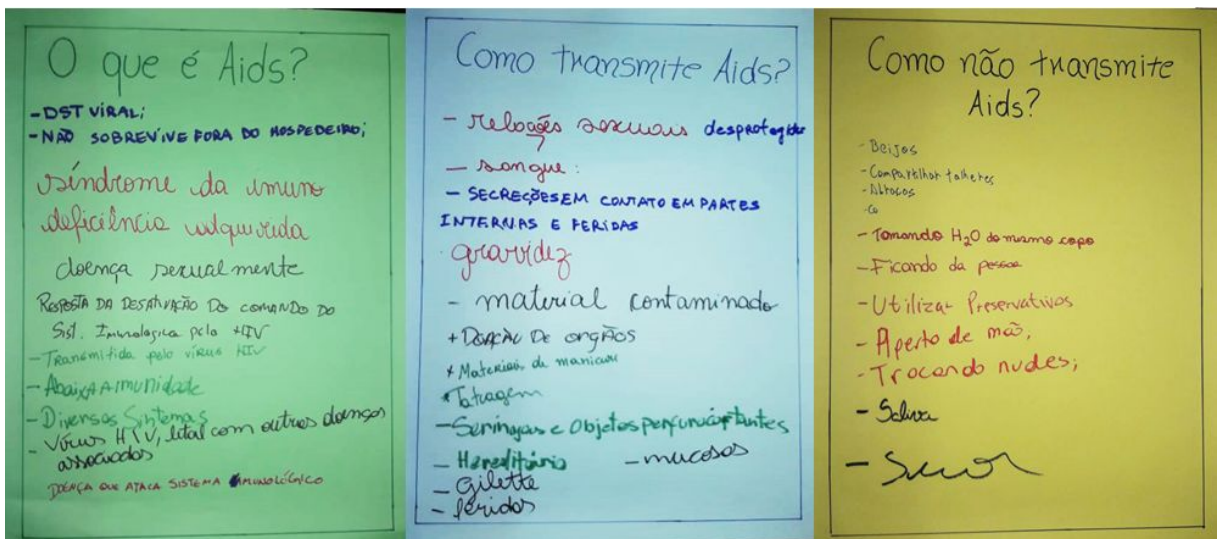 O que é Aids?
- DST VIRAL;
- NÃO SOBREVIVE FORA DO HOSPEDEIRO;
síndrome da imuno
deficiência adquirida
doença sexualmente
RESPOSTA DA DESATIVAÇÃO DO COMANDO DO
Sist. Imunologica pelo HIV
- Transmitida pelo vírus HIV
- Abaixa A imunidade
- Diversos Sintomas
- Vírus HIV, letal com outras doenças
associadas
DOENÇA QUE ATACA SISTEMA IMUNOLÓGICO
Como transmite Aids?
- relações sexuais desprotegidas
- sangue:
- SECREÇÕES EM CONTATO EM PARTES
INTERNAS E FERIDAS
gravidez
- material contaminado
+ DOAÇÃO DE ORGÃOS
* Materiais de manicure
* Tatuagem
- Seringas e Objetos perfurocortantes
- Hereditário - mucosas
- gilette
- feridas
Como não transmite
Aids?
- Beijos
- Compartilhar talheres
- Abraços
- Co
- Tomando H₂O do mesmo copo
- Ficando da pessoa
- Utilizar Preservativos
- Aperto de mão;
- Trocando nudes;
- Saliva
- Suor